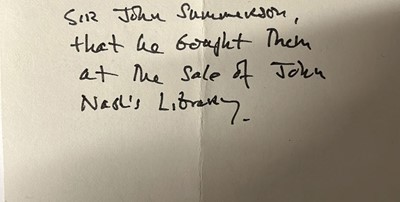 Sir John Summerson,
that he bought them
at the sale of John
Nash's Library.